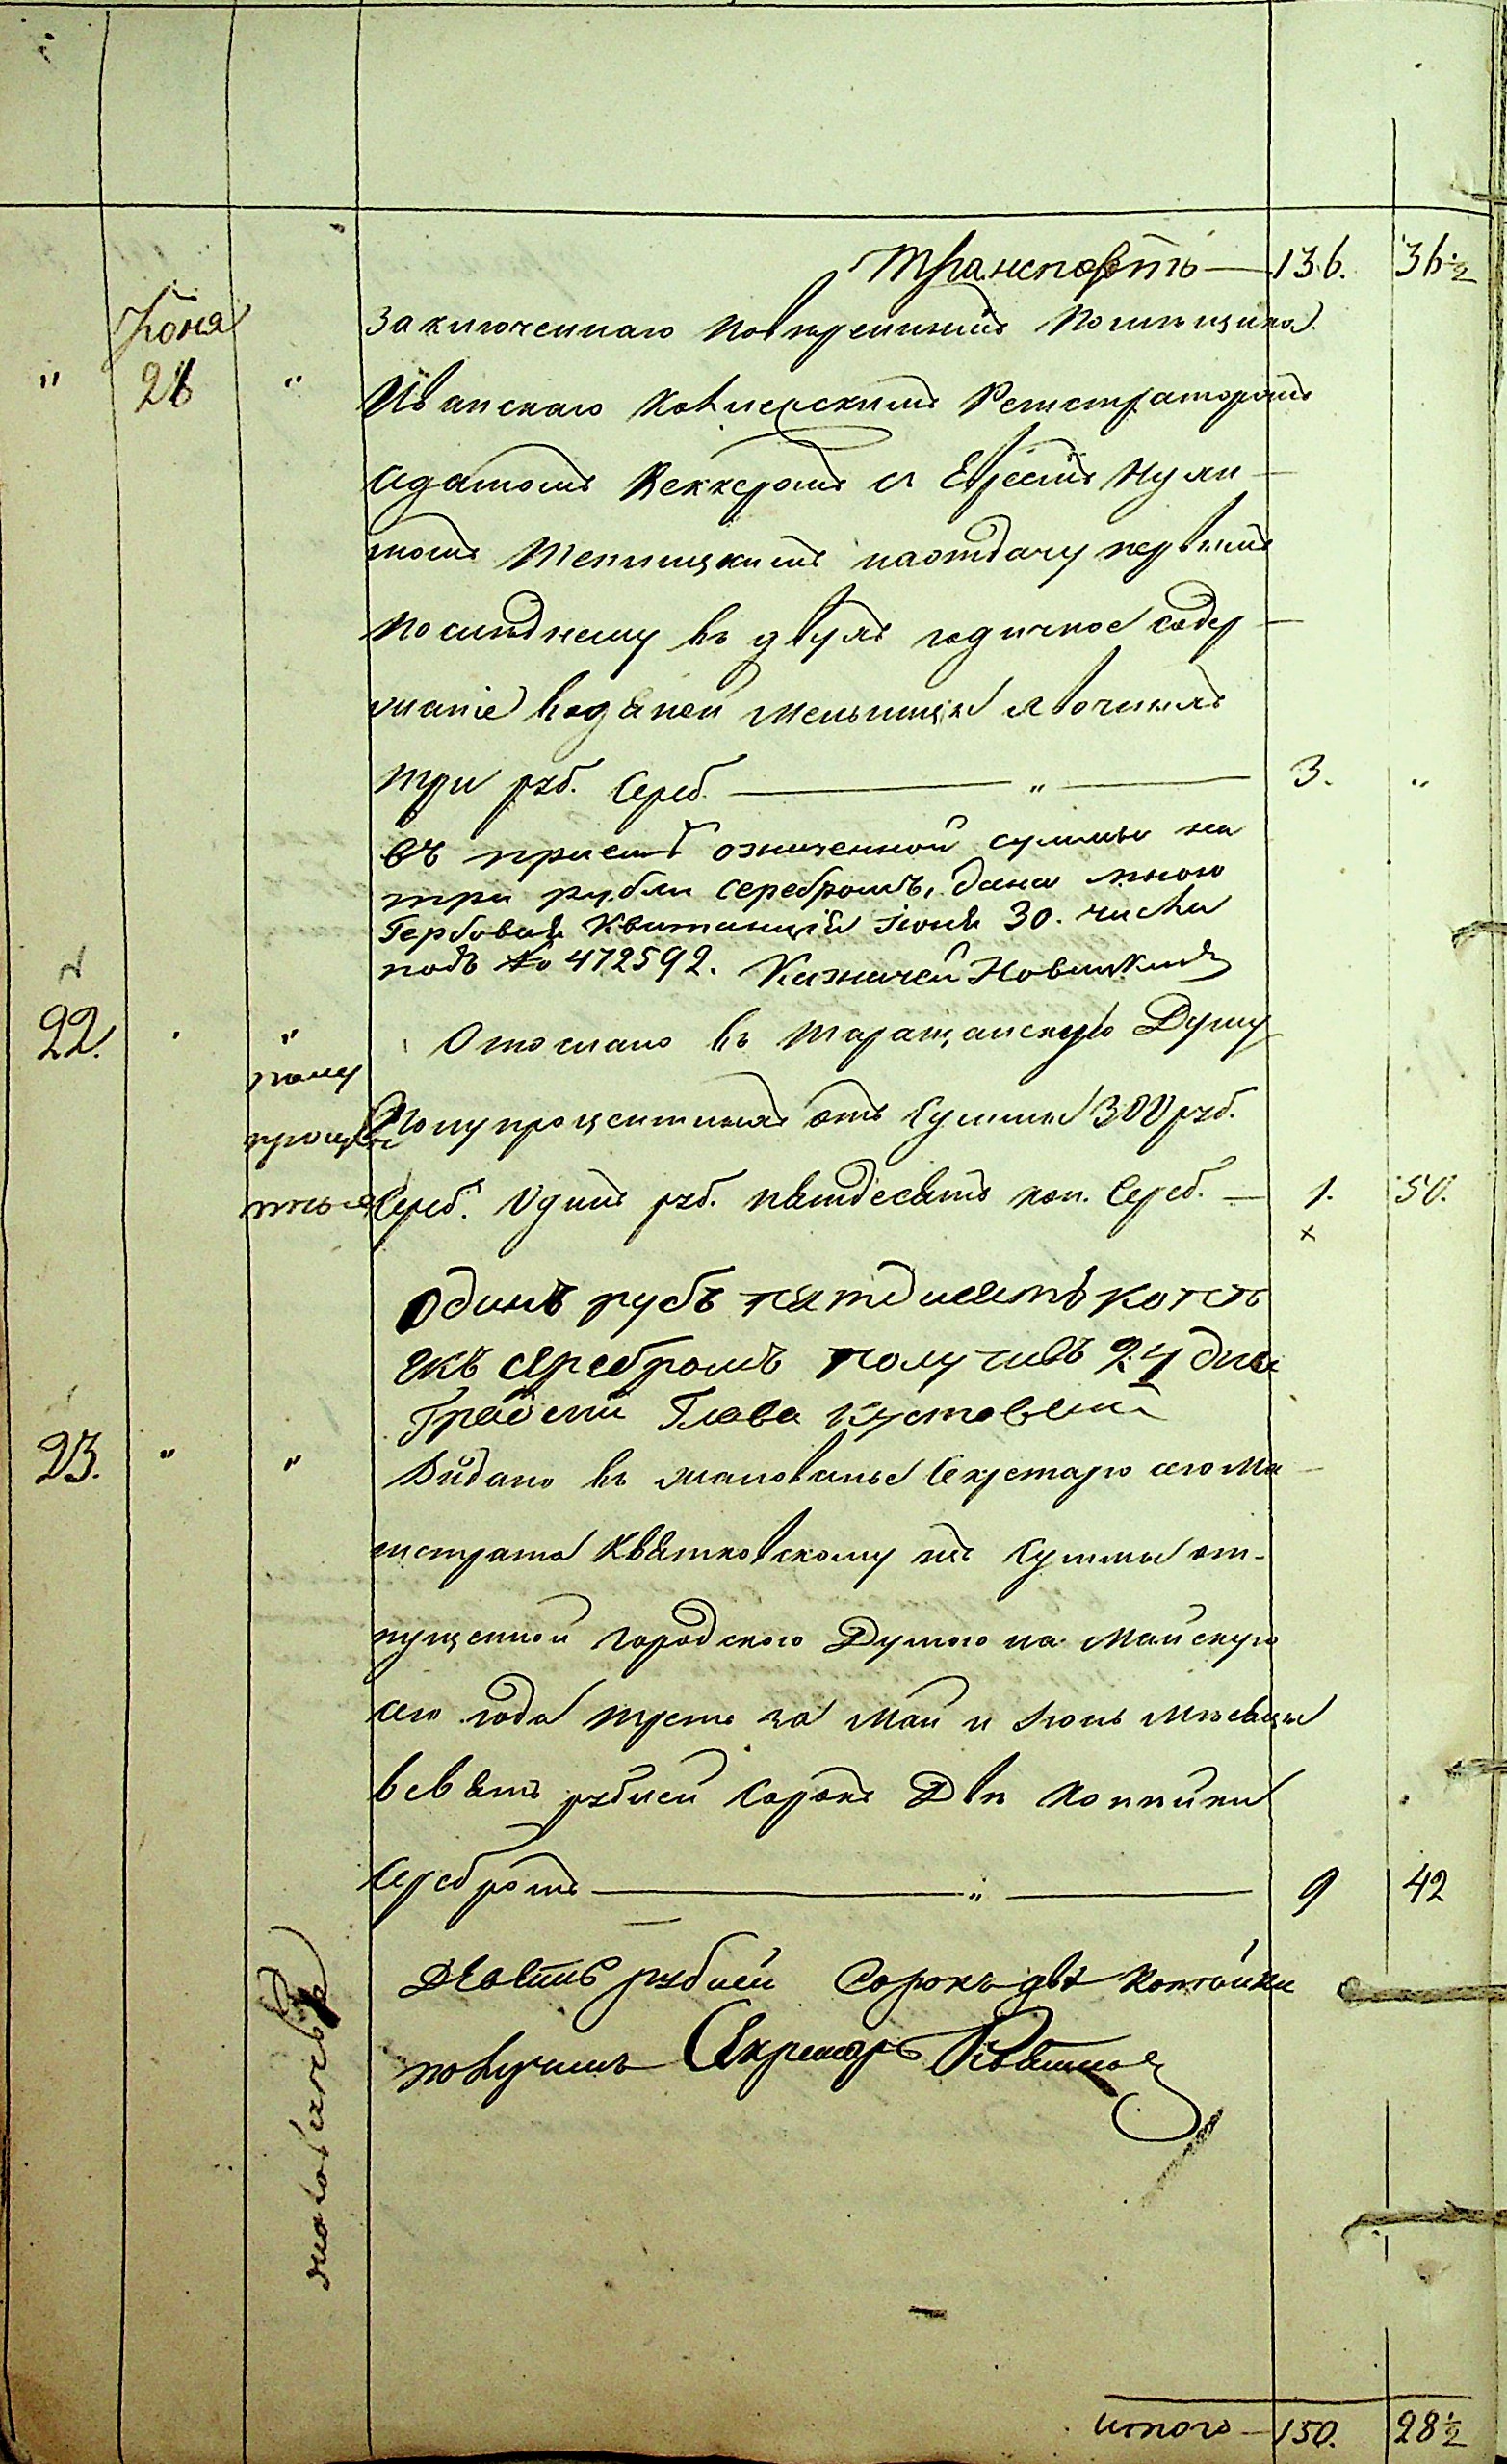 Транспортъ — 136. 36½
Июня заключеннаго повѣреннымъ помѣщика
" 26 " Иванскаго Коллежскимъ Регистраторомъ
Адамомъ и Евреемъ
наотдачу первымъ
послѣднему въ двухъ годичное содер-
жаніе водяной мельницы
три руб. сереб. — " — 3. "
въ приемѣ означенной суммы на
три рубли серебромъ, дана мною
Гербовая Квитанція іюня 30. числа
подъ № 472592. Казначей
22. . " Отослано въ Таращанскую Думу
полу
процен полупроцентныхъ отъ суммы 300 руб.
тныя сереб. одинъ руб. пятдесятъ коп. сереб. — 1. 50.
х
Одинъ рубъ пятдисятъ копѣ
екъ серебромъ получивъ 24 дня
Градскій Глава Кустовскій
23. " " Выдано въ жалованье Секретарю сего Ма
гистрата Квятковскому изъ суммы от-
пущенной городскою Думою на Майскую
сего года треть за Май и Июнь мѣсяцы
девять рублей сорокъ двѣ копѣйки
серебромъ — " — 9 42
Девять рублей сорокъ двѣ копѣйки
получилъ Секретарь Квятков
жалованья
итого — 150. 28½